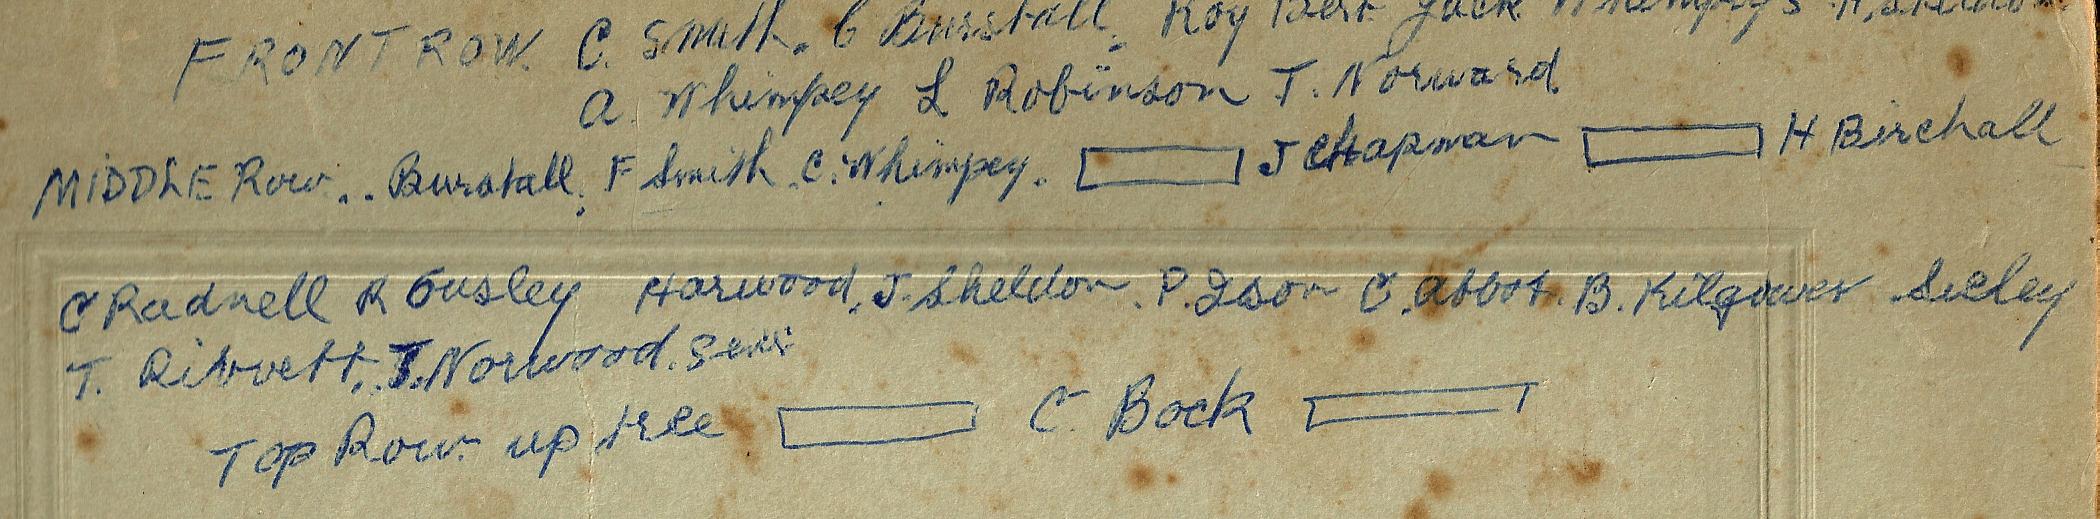 FRONT ROW. C. Smith. C Burstall. Roy Bert Jack Whimpey's H. Sheldon
A. Whimpey L Robinson T. Norward
MIDDLE Row... Burstall. F Smith. C. Whimpey. J CHapman H Birchall
C Radnell R Ousley Harwood. J. Sheldon. P. Ison C. Abbot. B. Kilgower Seeley
T. Rivvett. J. Norwood. Sen
Top Row up tree C. Bock